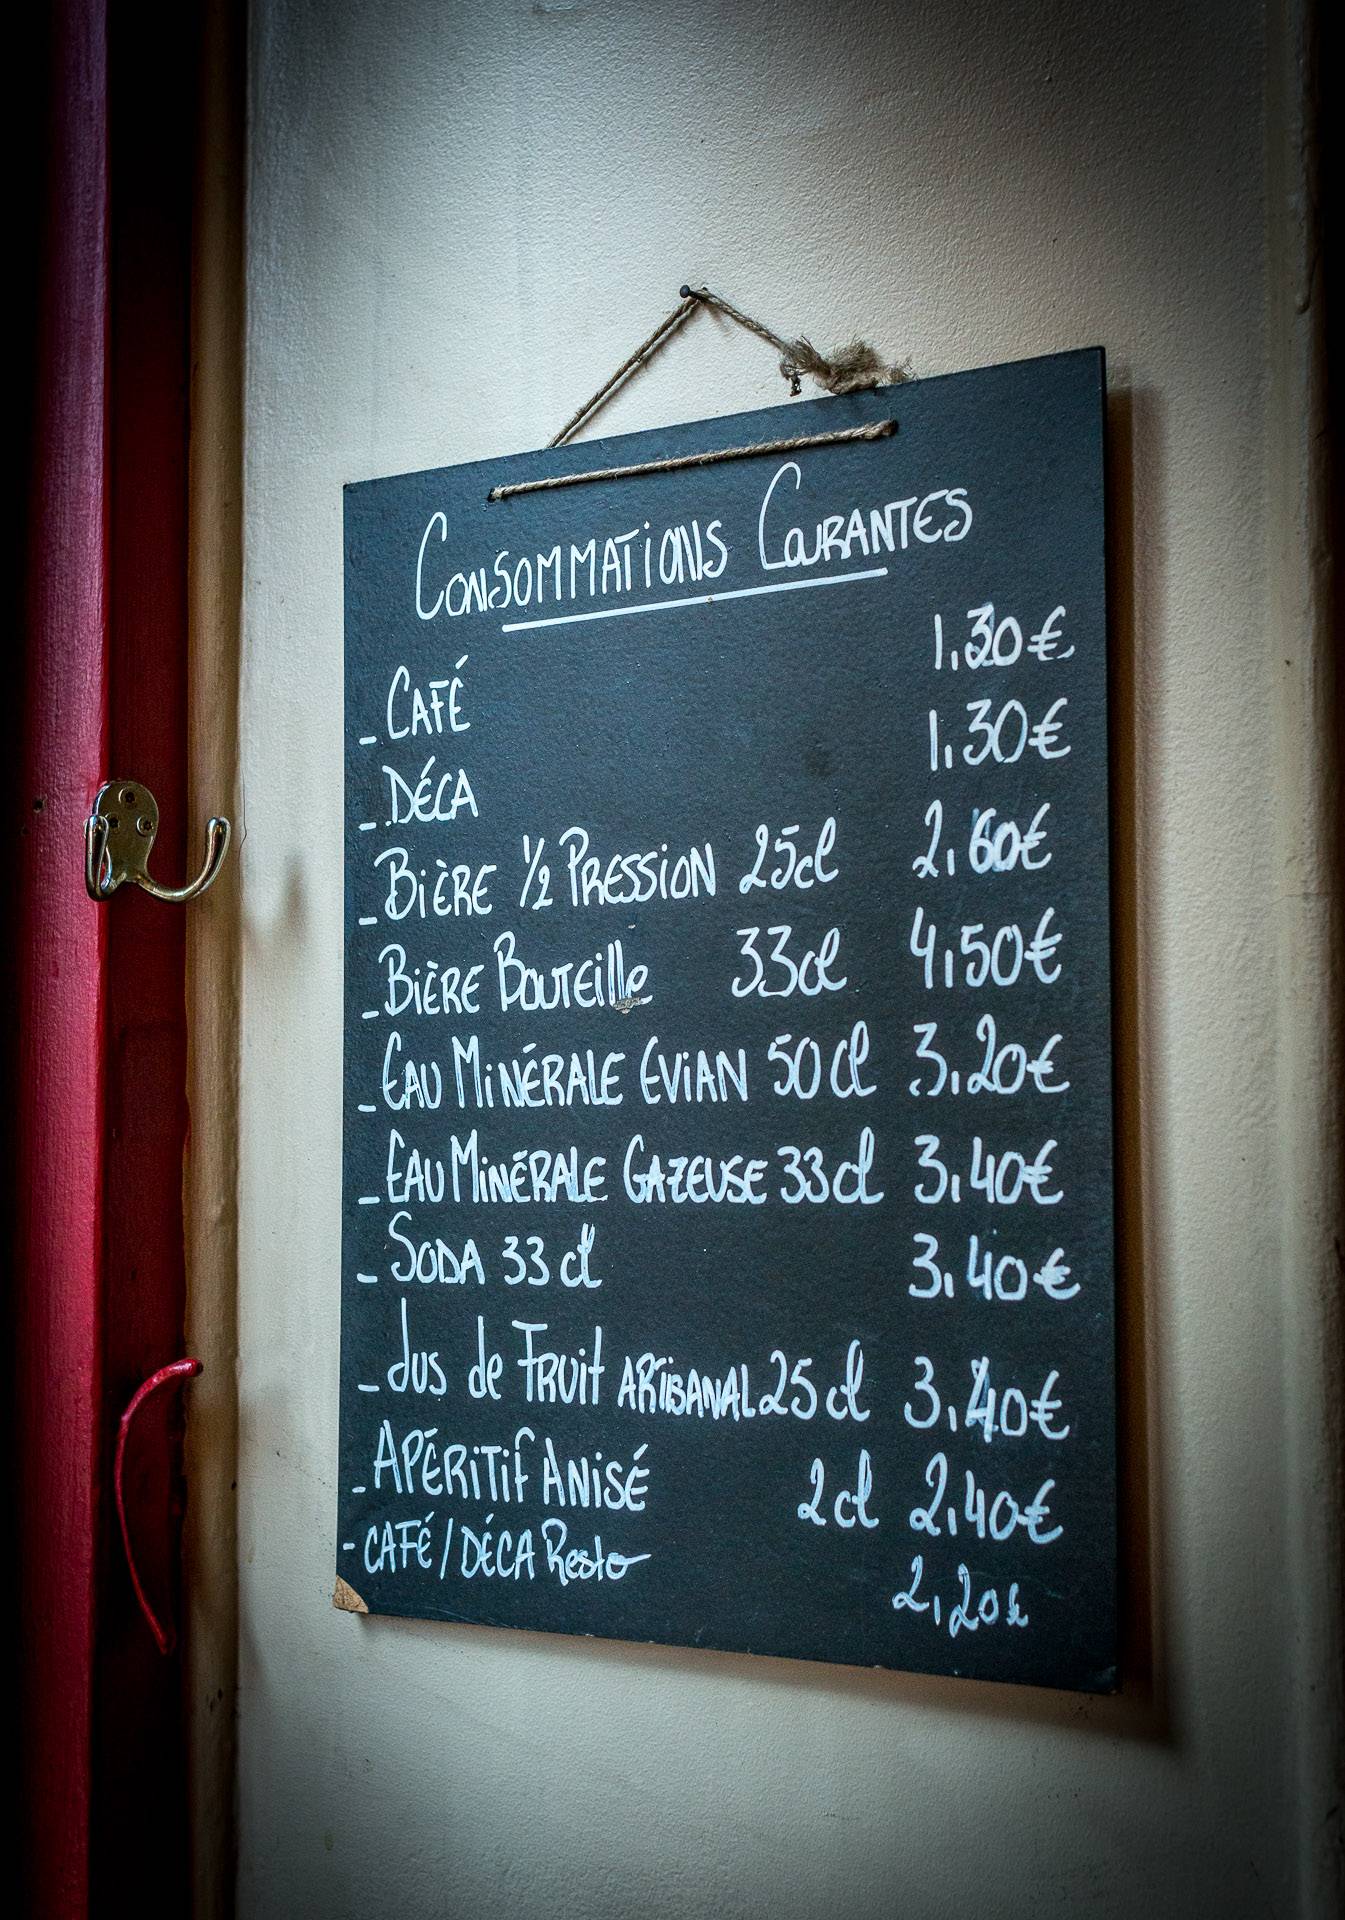 CONSOMMATIONS COURANTES
- CAFÉ 1,30€
- DÉCA 1,30€
- BIÈRE ½ PRESSION 25cl 2,60€
- BIÈRE BOUTEille 33cl 4,50€
- EAU MINÉRALE EVIAN 50cl 3,20€
- EAU MINÉRALE GAZEUSE 33cl 3,40€
- SODA 33cl 3,40€
- Jus de Fruit ARTISANAL 25cl 3,40€
- APÉRITIF ANISÉ 2cl 2,40€
- CAFÉ/DÉCA Resto 2,20€